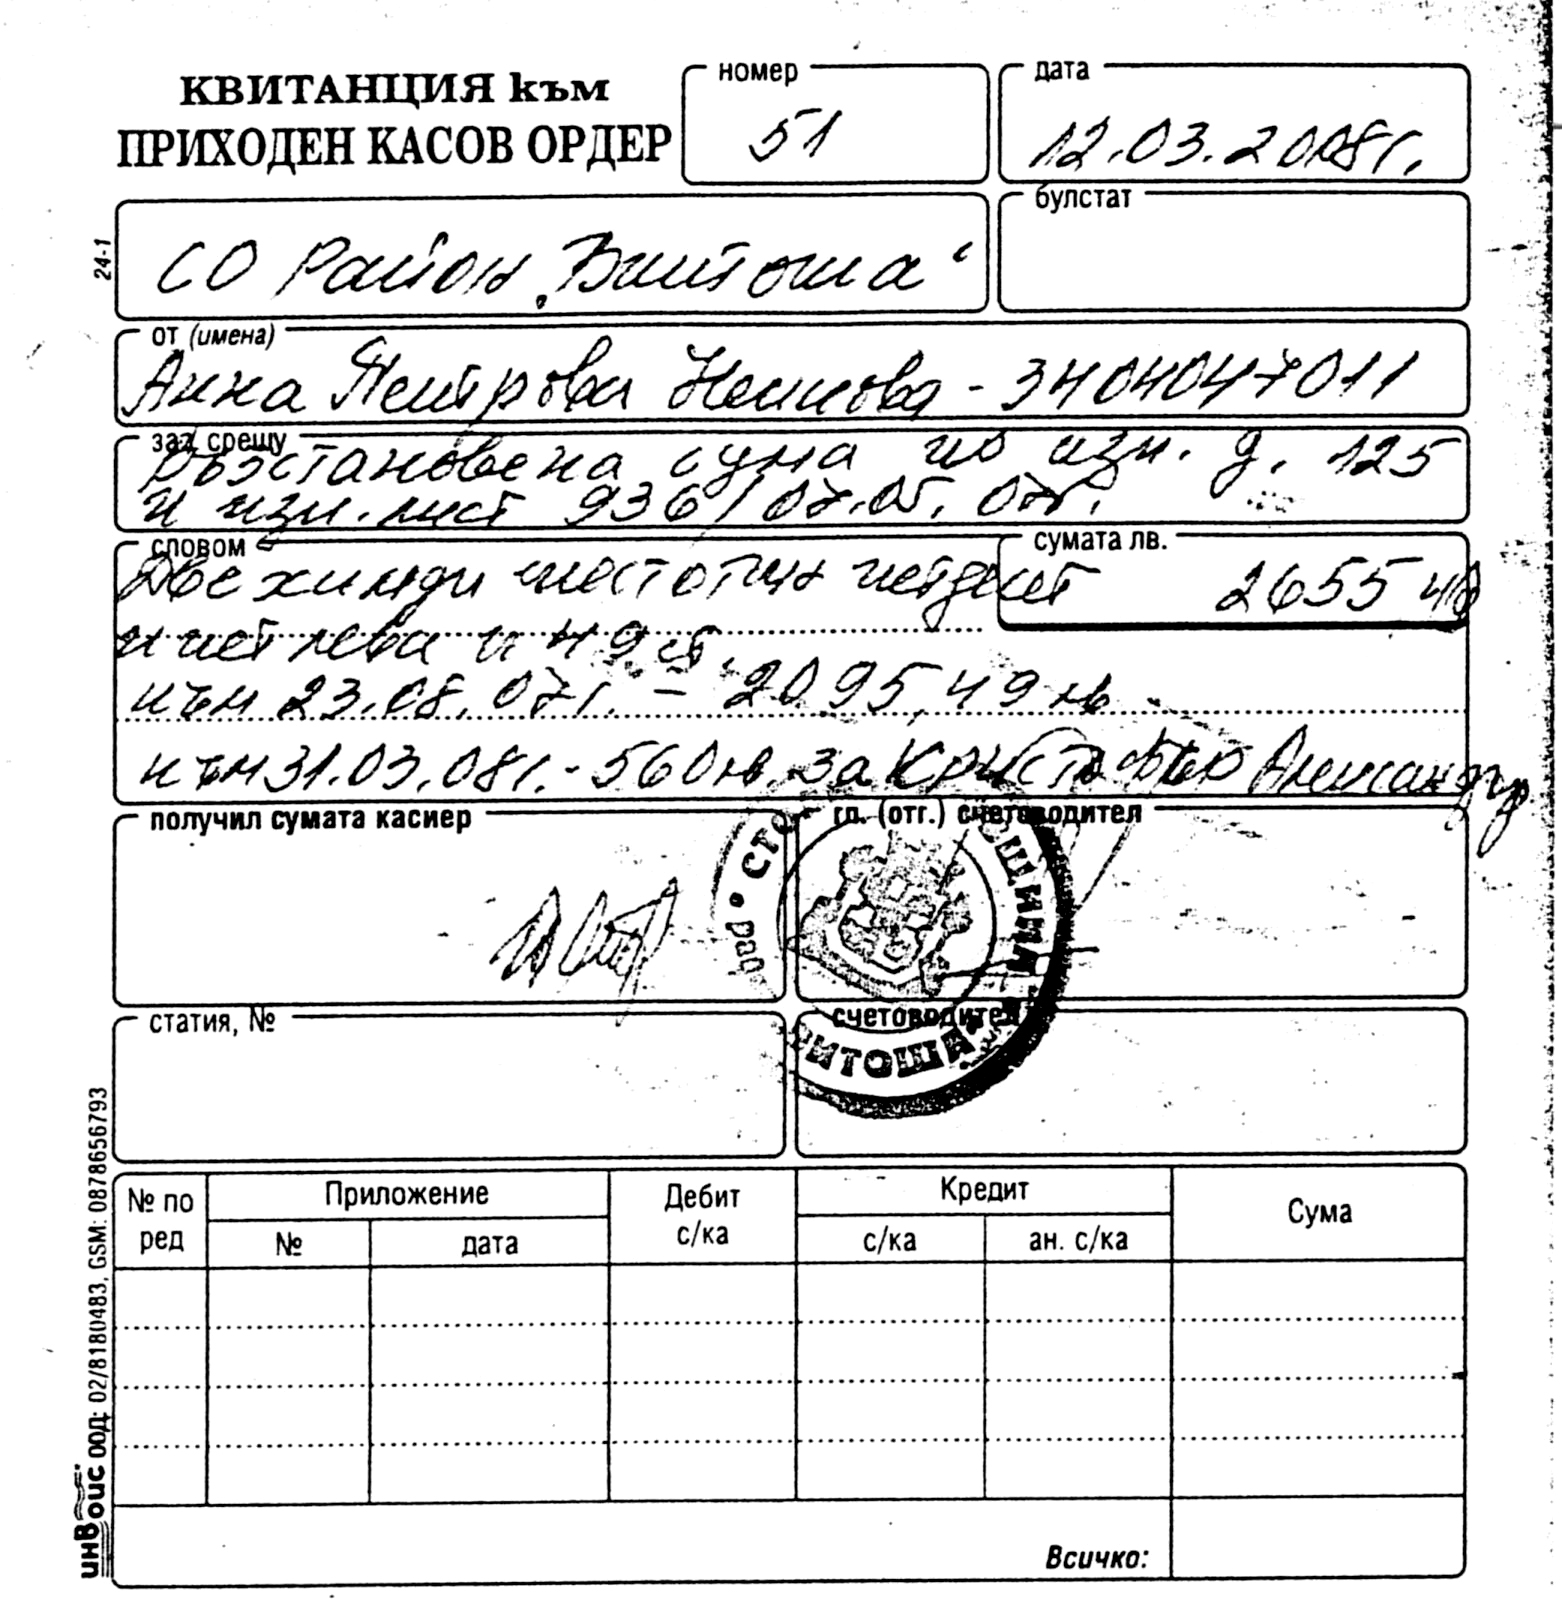 КВИТАНЦИЯ към
ПРИХОДЕН КАСОВ ОРДЕР
номер
51
дата
12.03.2008г.
24-1
СО Район „Витоша“
булстат
от (имена)
Анна Петрова Ненкова - 3404047011
за / срещу
Възстановена сума по изп. д. 125
и изп. лист 936/07.05.07г.
словом
Две хиляди шестотин петдесет
и пет лева и 49 ст.
сумата лв.
2655,49
към 23.08.07г. - 2095,49 лв.
към 31.03.08г. - 560 лв. за Кристофър Александър
получил сумата касиер
гл. (отг.) счетоводител
статия, №
счетоводител
СТО ОБЩИНА
ВИТОША
№ по ред
Приложение
№
дата
Дебит с/ка
Кредит
с/ка
ан. с/ка
Сума
Всичко:
инвоис ООД: 02/8180483, GSM: 0878656793